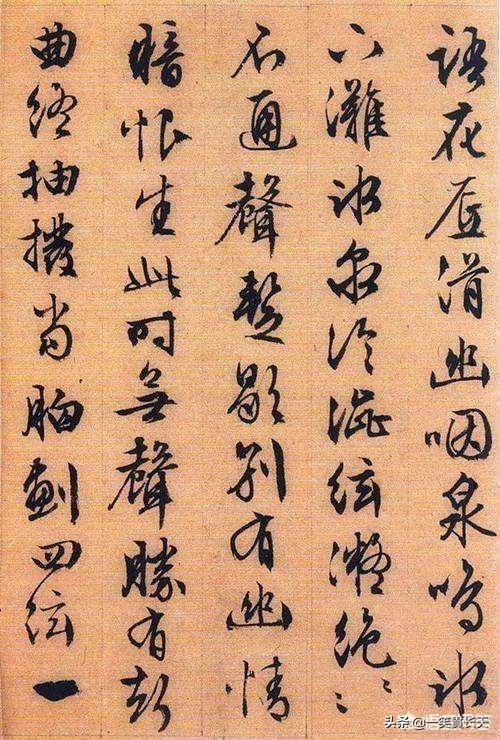 語花底滑幽咽泉鳴冰
下灘冰泉冷澀絃凝絕〻〻
不通聲暫歇別有幽情
暗恨生此時無聲勝有
曲終抽撥當胸劃四絃一
头条 @一笑貫长天